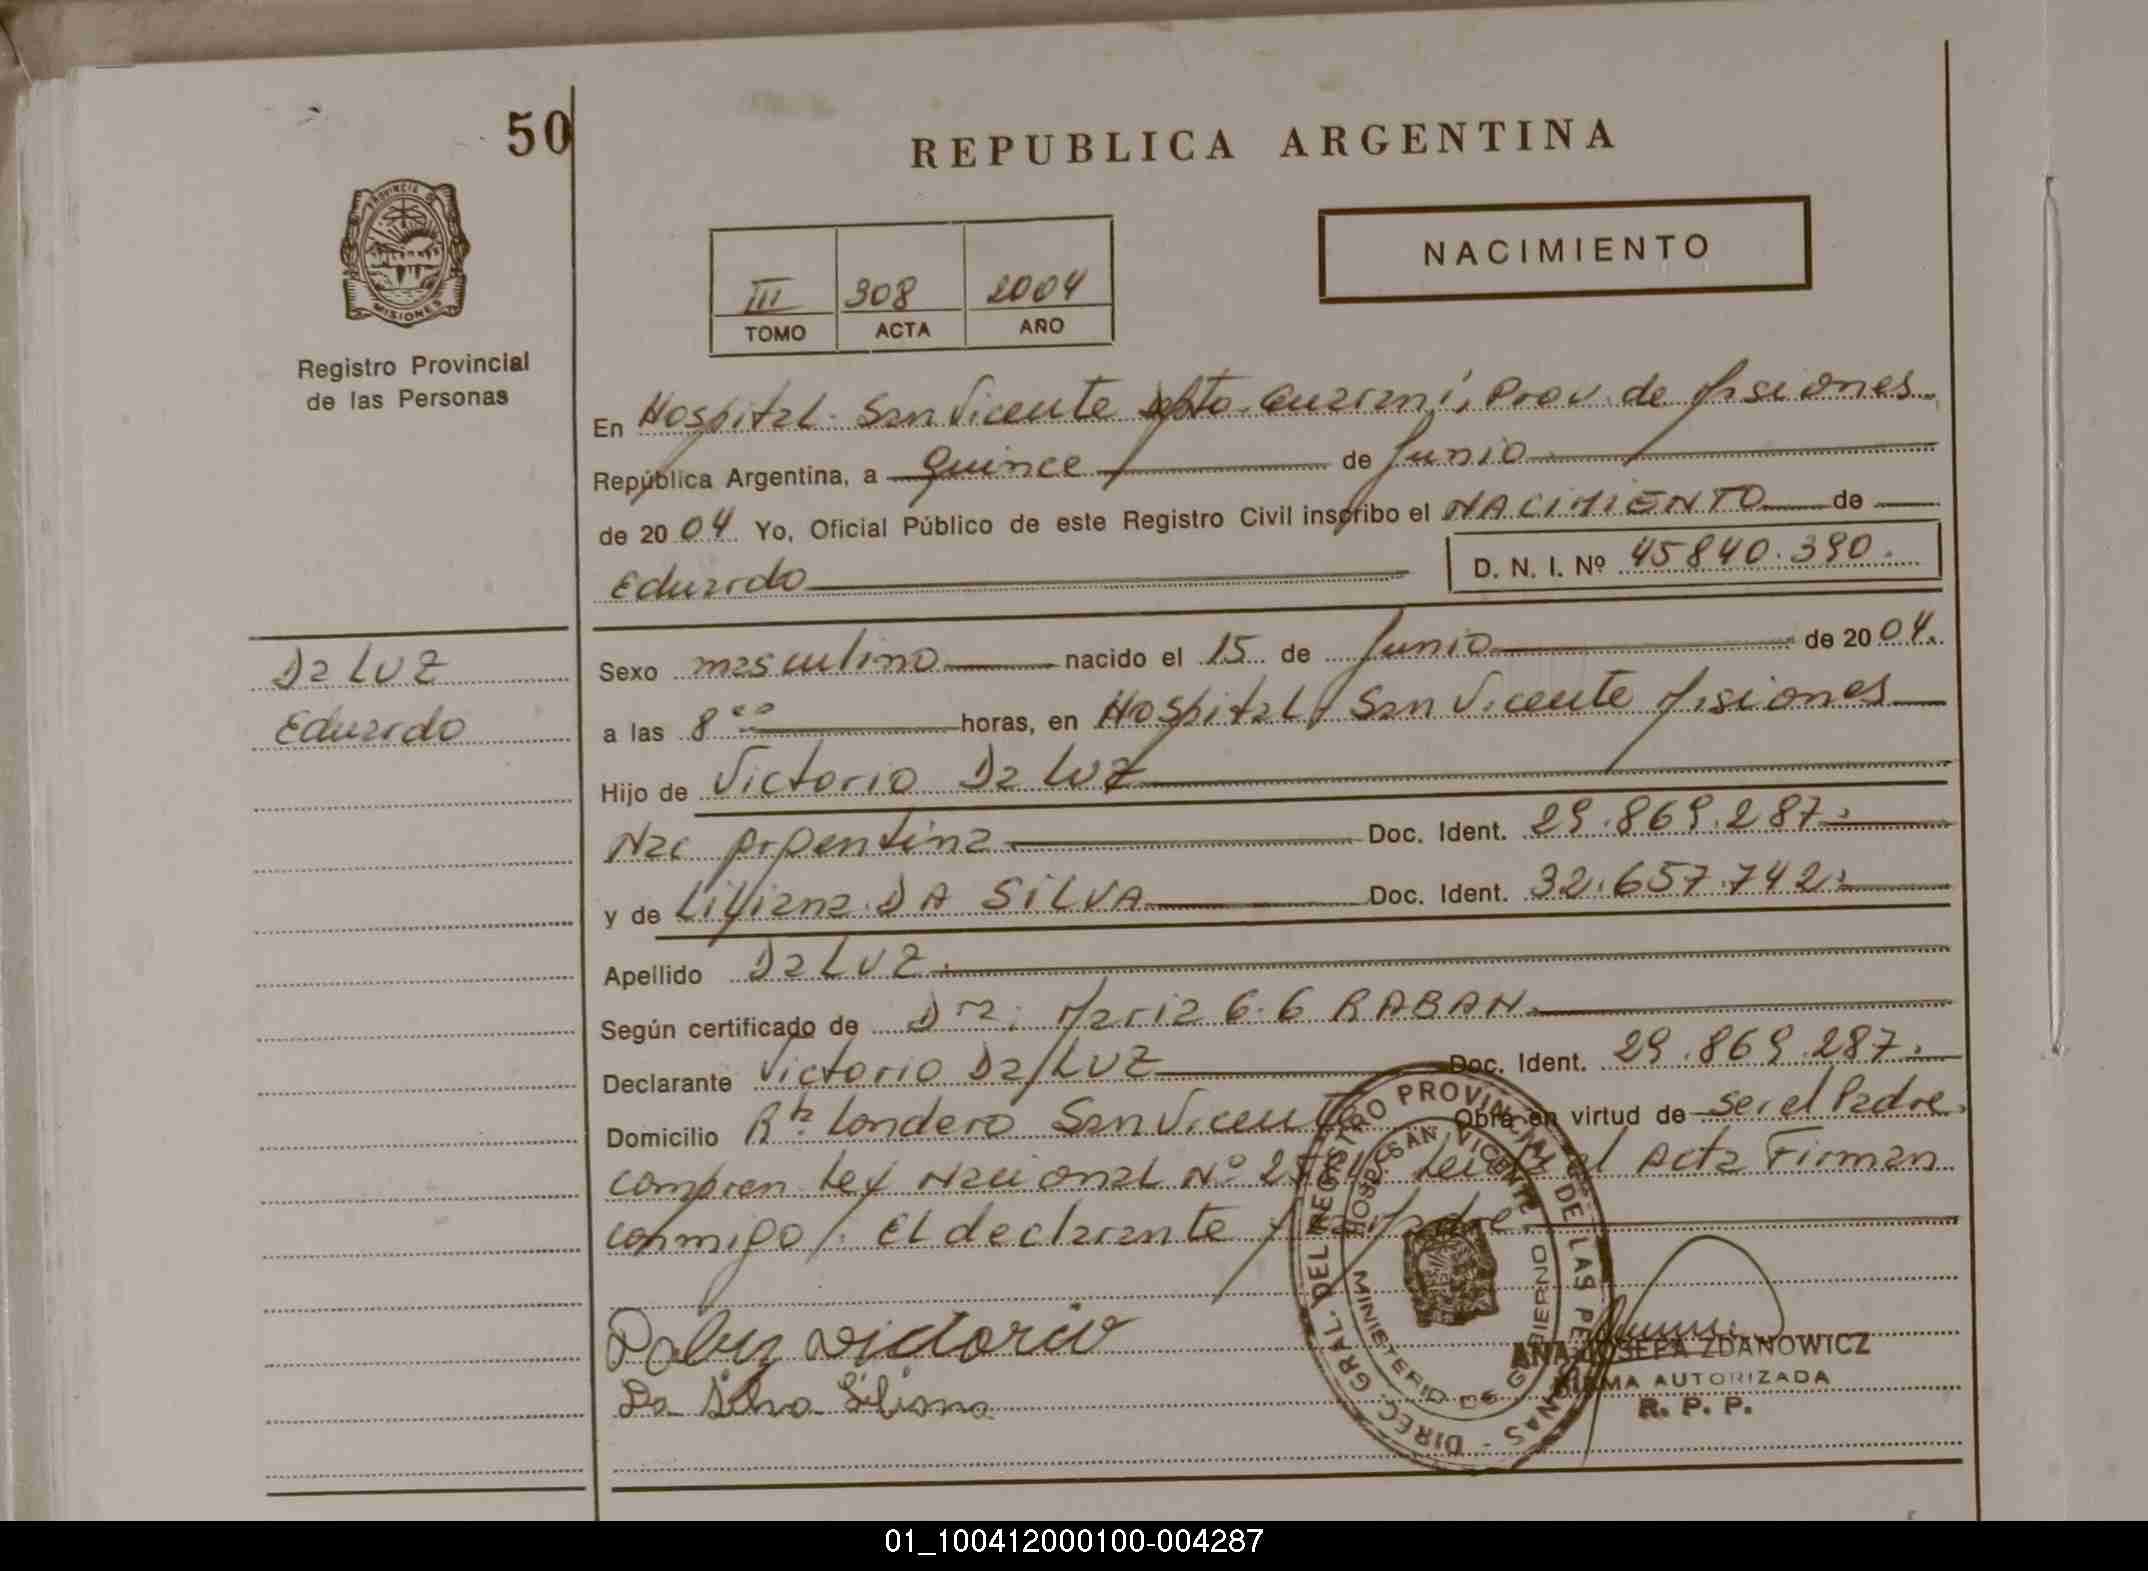 50
REPUBLICA ARGENTINA
PROVINCIA DE
MISIONES
Registro Provincial
de las Personas
NACIMIENTO
III 308 2004
TOMO ACTA AÑO
En Hospital San Vicente dpto. Guaraní, Prov. de Misiones
República Argentina, a Quince de Junio
de 2004 Yo, Oficial Público de este Registro Civil inscribo el NACIMIENTO de
Eduardo D. N. I. Nº 45840.390.
Da LUZ
Eduardo
Sexo masculino nacido el 15 de Junio de 2004.
a las 8 00 horas, en Hospital San Vicente Misiones
Hijo de Victorio Da LUZ
Nac Argentina Doc. Ident. 29.869.287
y de Liliana DA SILVA Doc. Ident. 32.657.742
Apellido Da LUZ.
Según certificado de Dra. Maria G. G RABAN
Declarante Victorio Da LUZ Doc. Ident. 29.869.287.
Domicilio Londero San Vicente Obra en virtud de ser el Padre
Ley Nacional Nº Acta Firman
conmigo. El declarante y Madre
victorio
Da Silva Liliana
DIREC. GRAL. DEL REGISTRO PROVINCIAL DE LAS PERSONAS
HOSP. SAN VICENTE
MINISTERIO DE GOBIERNO
ANA JOSEFA ZDANOWICZ
FIRMA AUTORIZADA
R. P. P.
01_100412000100-004287